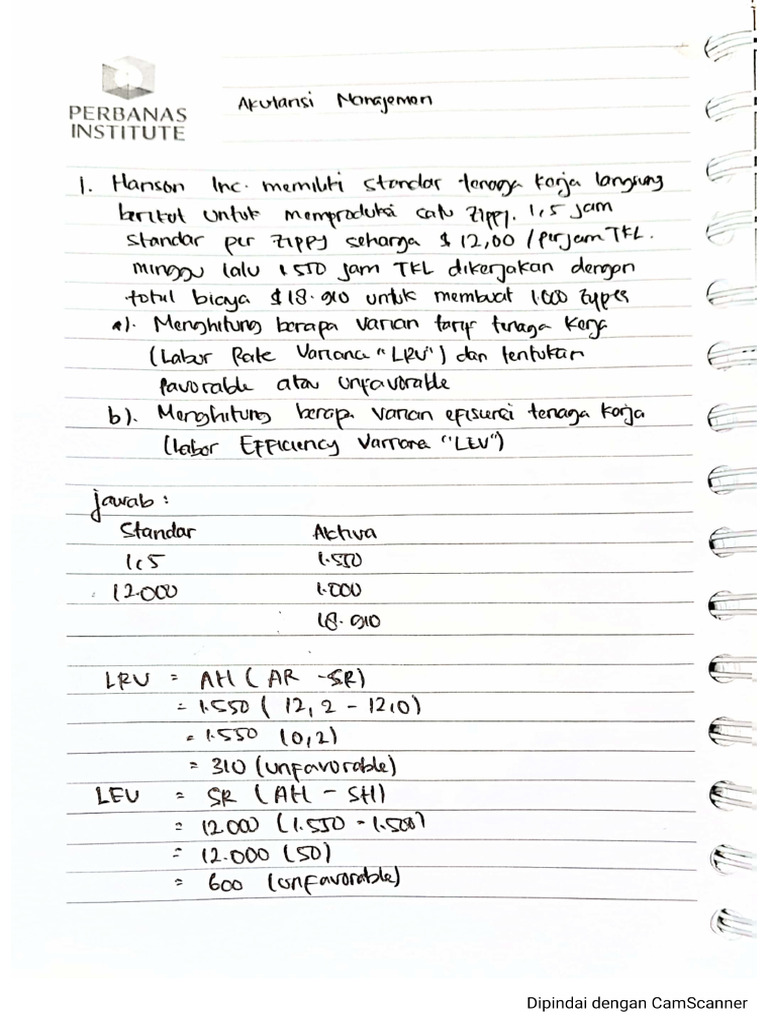 PERBANAS
INSTITUTE
Akutansi Manajemen
1. Hanson Inc. memiliki standar tenaga kerja langsung
berikut untuk memproduksi satu Zippy. 1,5 jam
standar per Zippy seharga $ 12,00 /perjam TKL.
minggu lalu 1.550 jam TKL dikerjakan dengan
total biaya $18.910 untuk membuat 1.000 zypies
a). Menghitung berapa varian tarif tenaga kerja
(Labor Rate Variana "LRV") dan tentukan
favorable atau unfavorable
b). Menghitung berapa varian efisiensi tenaga kerja
(labor Efficiency Variana "LEV")
jawab :
Standar Aktiva
1,5 1.550
12.000 1.000
18.910
LRV = AH ( AR - SR)
= 1.550 ( 12,2 - 12,0)
= 1.550 (0,2)
= 310 (unfavorable)
LEV = SR (AH - SH)
= 12.000 (1.550 - 1.500)
= 12.000 (50)
= 600 (unfavorable)
Dipindai dengan CamScanner